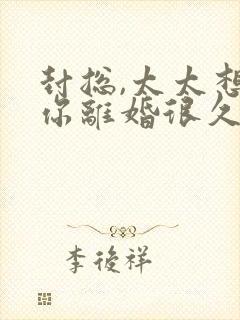 封总,太太想
你離婚很久
李後祥